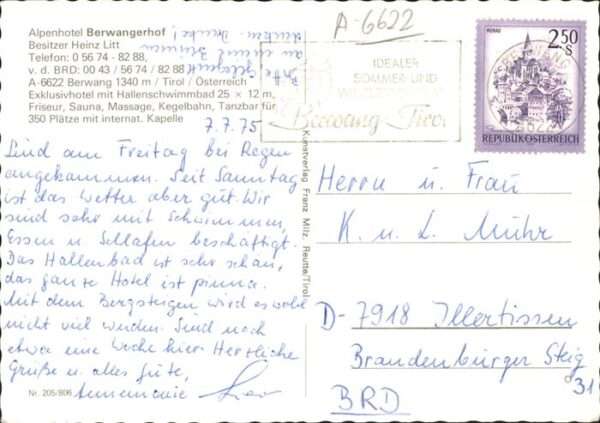 Alpenhotel Berwangerhof
Besitzer Heinz Litt
Telefon: 0 56 74 - 82 88,
v. d. BRD: 00 43 / 56 74 / 82 88
A-6622 Berwang 1340 m / Tirol / Österreich
Exklusivhotel mit Hallenschwimmbad 25 × 12 m,
Friseur, Sauna, Massage, Kegelbahn, Tanzbar für
350 Plätze mit internat. Kapelle
7.7.75
Sind am Freitag bei Regen
angekommen. Seit Samstag
ist das Wetter aber gut. Wir
sind sehr mit Schwimmen,
Essen u. Schlafen beschäftigt.
Das Hallenbad ist sehr schön,
das ganze Hotel ist prima.
Mit dem Bergsteigen wird es wohl
nicht viel werden. Sind noch
etwa eine Woche hier. Herzliche
Grüße u. alles Gute,
Annemarie
Nr. 205/806
Kunstverlag Franz Milz, Reutte/Tirol
A-6622
IDEALER
SOMMER- UND
Berwang Tirol
MURAU
2.50
S
REPUBLIK ÖSTERREICH
BERWANG
6622
Herrn u. Frau
K. u. L. Mühr
D-7918 Illertissen
Brandenburger Steig
31
BRD